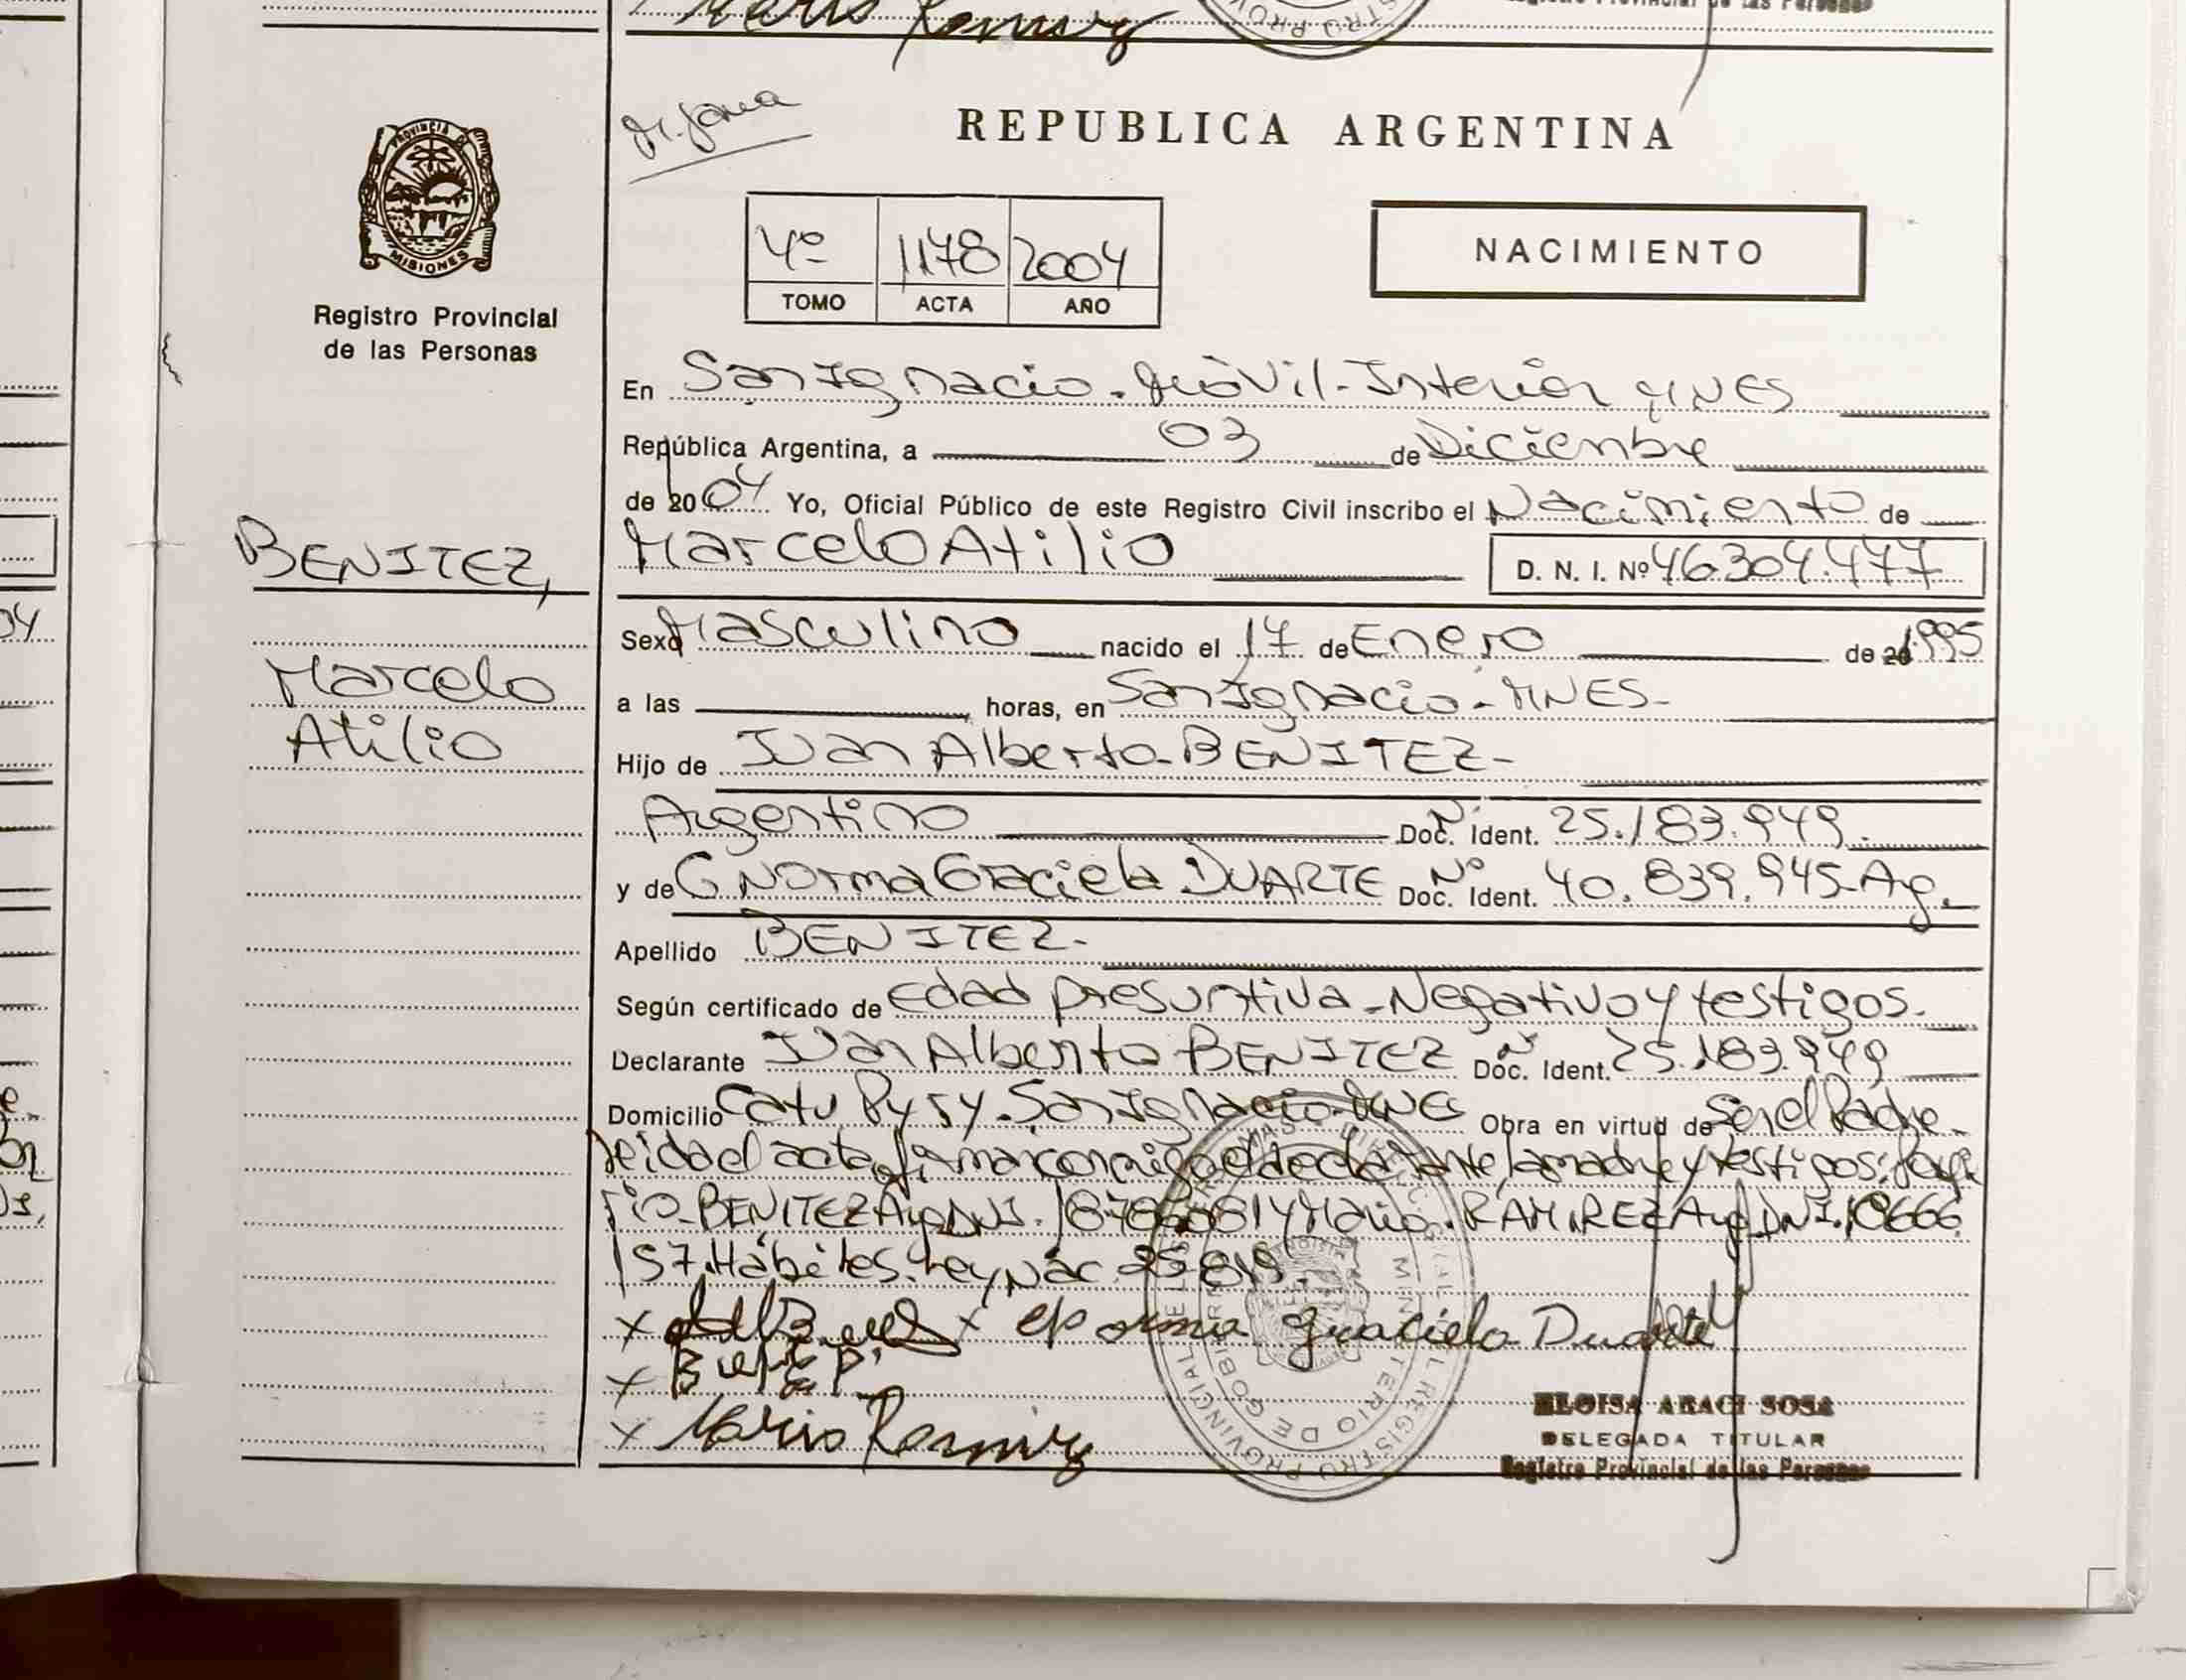 Mario Ramirez
REPUBLICA ARGENTINA
PROVINCIA DE
MISIONES
Registro Provincial
de las Personas
4º 1178 2004
TOMO ACTA AÑO
NACIMIENTO
En San Ignacio - Móvil - Interior MNES
República Argentina, a 03 de Diciembre
de 2004 Yo, Oficial Público de este Registro Civil inscribo el Nacimiento de
BENITEZ,
Marcelo
Atilio
Marcelo Atilio D. N. I. Nº 46.304.477
Sexo Masculino nacido el 17 de Enero de 1995
a las horas, en San Ignacio - MNES-
Hijo de Juan Alberto - BENITEZ -
Argentino Nº Doc. Ident. 25.183.949.
y de Norma Graciela DUARTE Nº Doc. Ident. 40.839.945 - Arg.
Apellido BENITEZ -
Según certificado de edad presuntiva - Negativo y testigos.
Declarante Juan Alberto BENITEZ Nº Doc. Ident. 25.183.949
Domicilio Catu Pyry - San Ignacio - MNES Obra en virtud de Ser el Padre -
leida el acta, firma conmigo el declarante, la madre y testigos:
BENITEZ Arg DNI. y Mario - RAMIREZ Arg DNI. 10666
157. Hábiles. Ley Nac. 25.819.
x x Norma Graciela Duarte
x
x Mario Ramirez
ELOISA ARACI SOSA
DELEGADA TITULAR
Registro Provincial de las Personas